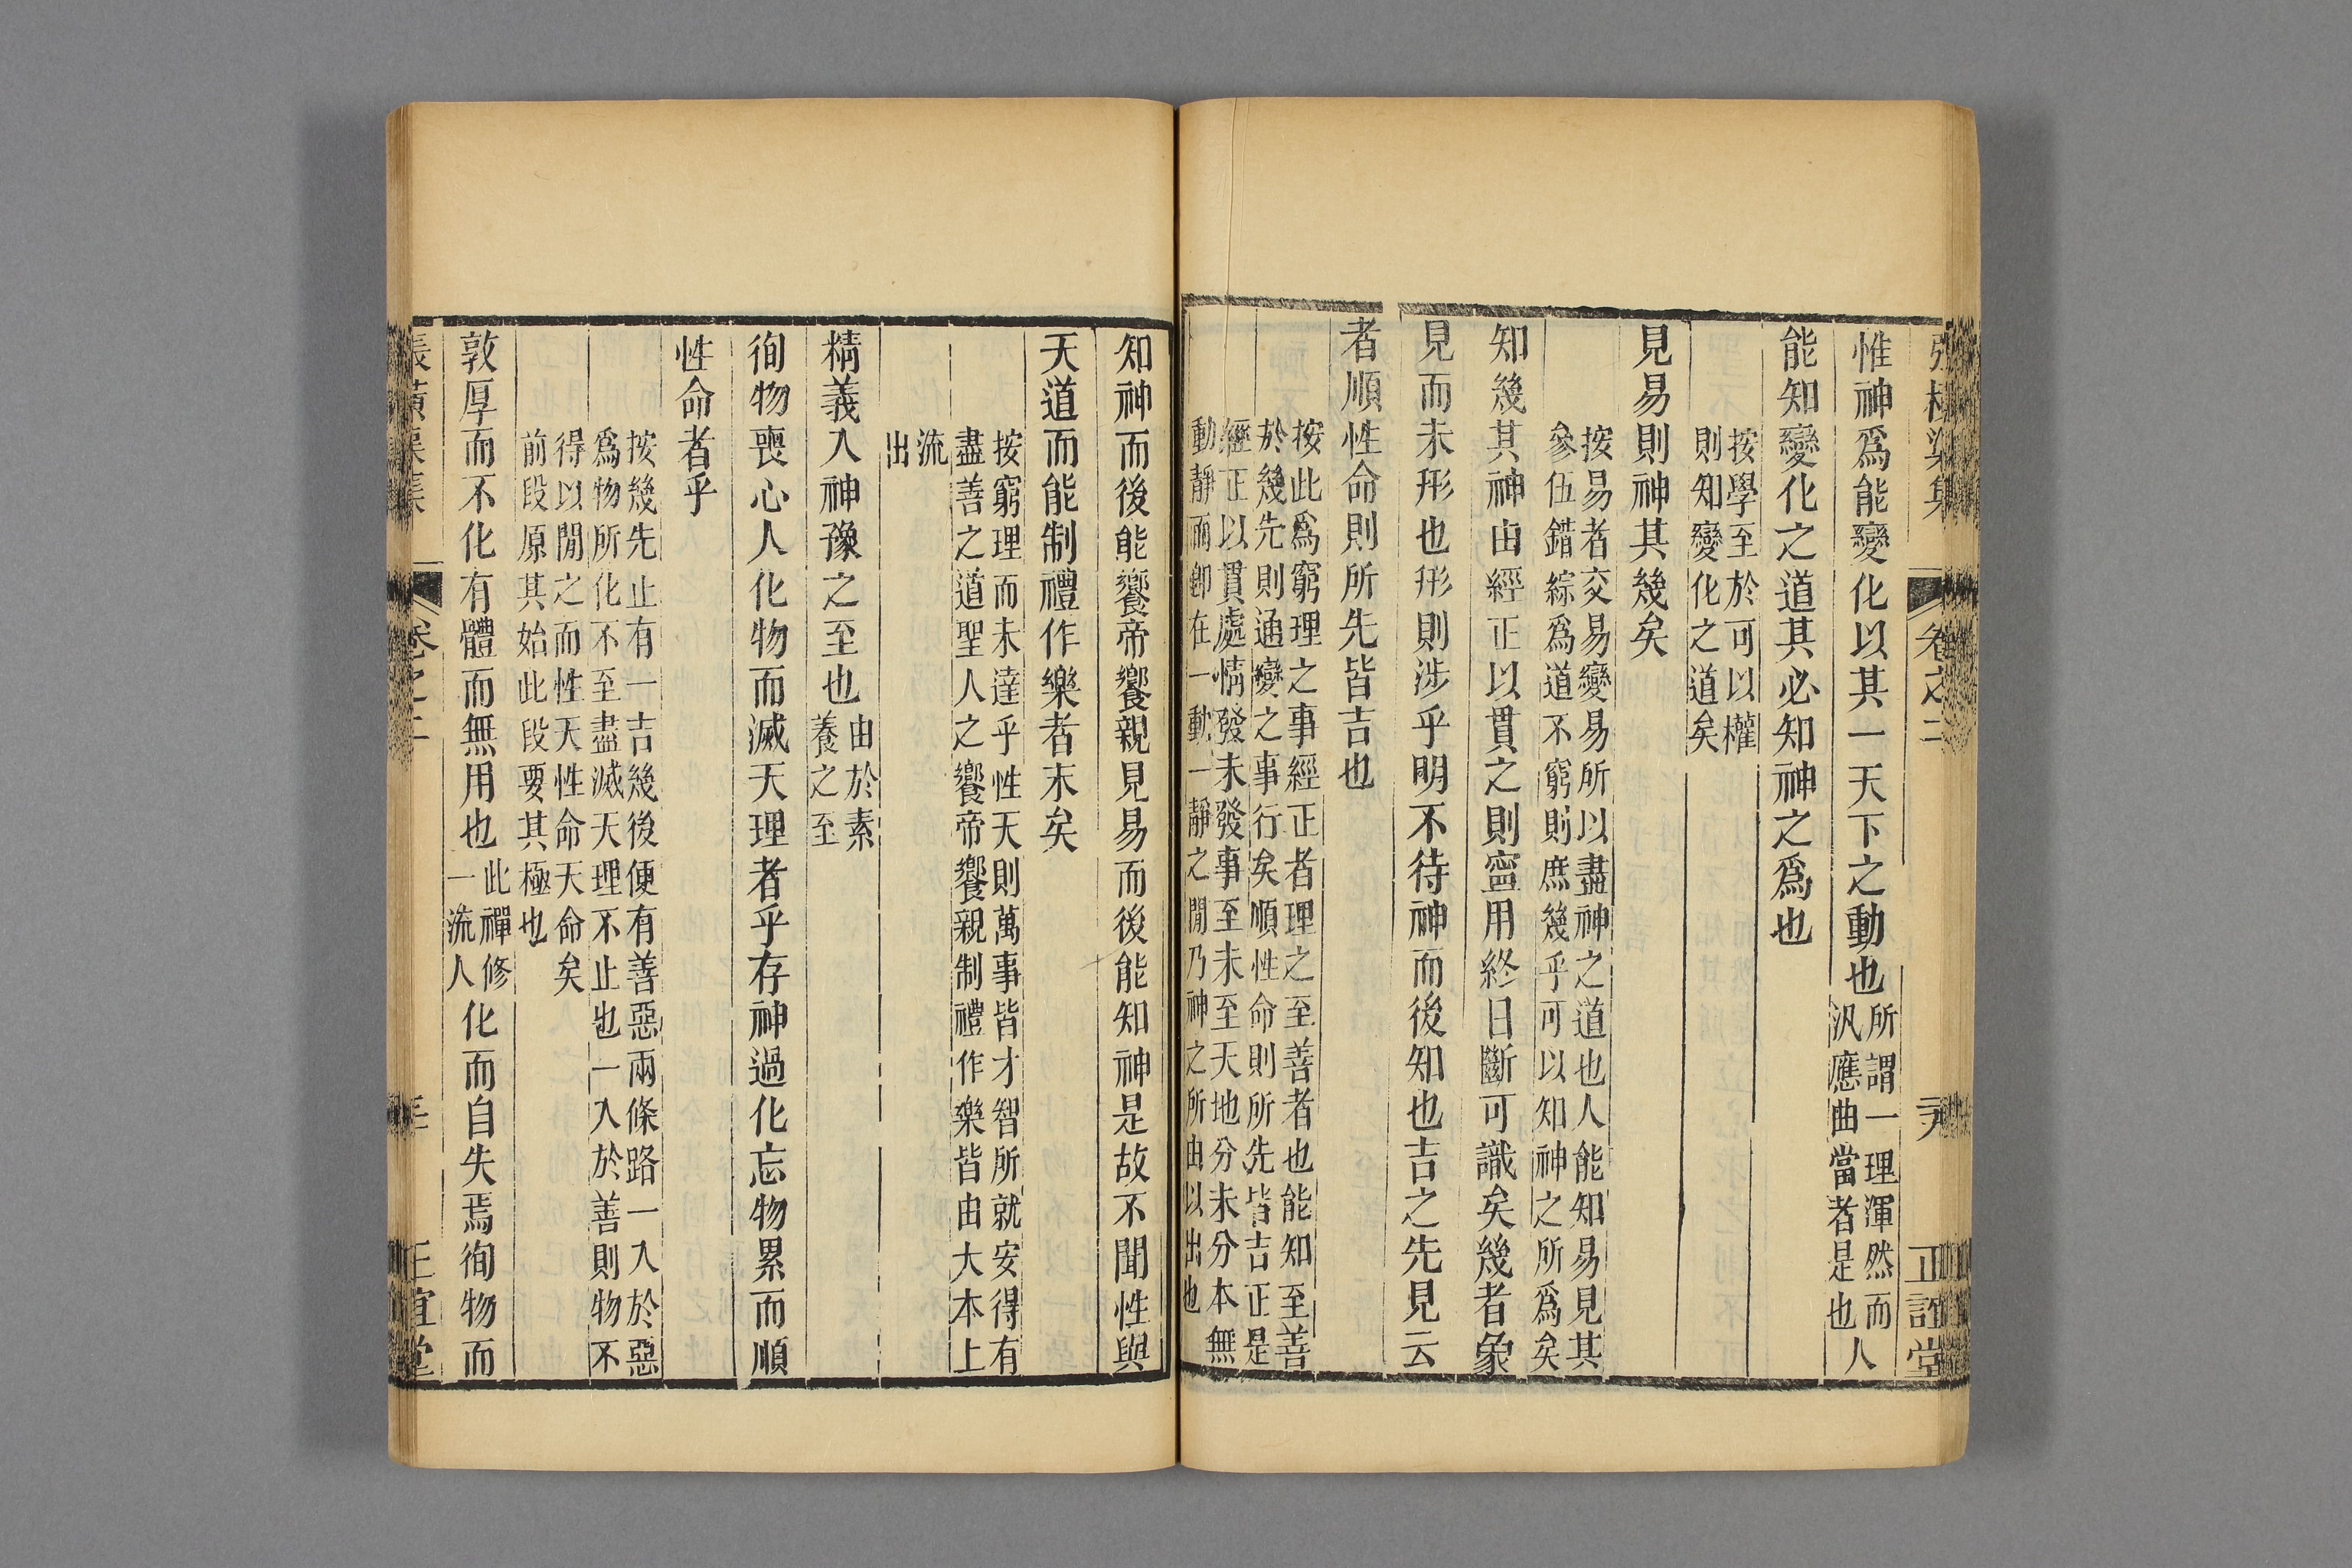 惟神爲能變化以其一天下之動也所謂一理渾然而汎應曲當者是也人
能知變化之道其必知神之爲也
按學至於可以權
則知變化之道矣
見易則神其幾矣
按易者交易變易所以盡神之道也人能知易見其
參伍錯綜爲道不窮則庶幾乎可以知神之所爲矣
知幾其神由經正以貫之則寧用終日斷可識矣幾者象
見而未形也形則涉乎明不待神而後知也吉之先見云
者順性命則所先皆吉也
按此爲窮理之事經正者理之至善者也能知至善
於幾先則通變之事行矣順性命則所先皆吉正是
經正以貫處情發未發事至未至天地分未分本無
動靜而卽在一動一靜之閒乃神之所由以出也
知神而後能饗帝饗親見易而後能知神是故不聞性與
天道而能制禮作樂者末矣
按窮理而未達乎性天則萬事皆才智所就安得有
盡善之道聖人之饗帝饗親制禮作樂皆由大本上
流
出
精義入神豫之至也由於素養之至
徇物喪心人化物而滅天理者乎存神過化忘物累而順
性命者乎
按幾先止有一吉幾後便有善惡兩條路一入於惡
爲物所化不至盡滅天理不止也一入於善則物不
得以閒之而性天性命天命矣
前段原其始此段要其極也
敦厚而不化有體而無用也此禪修一流人化而自失焉徇物而
卷之二
正誼堂